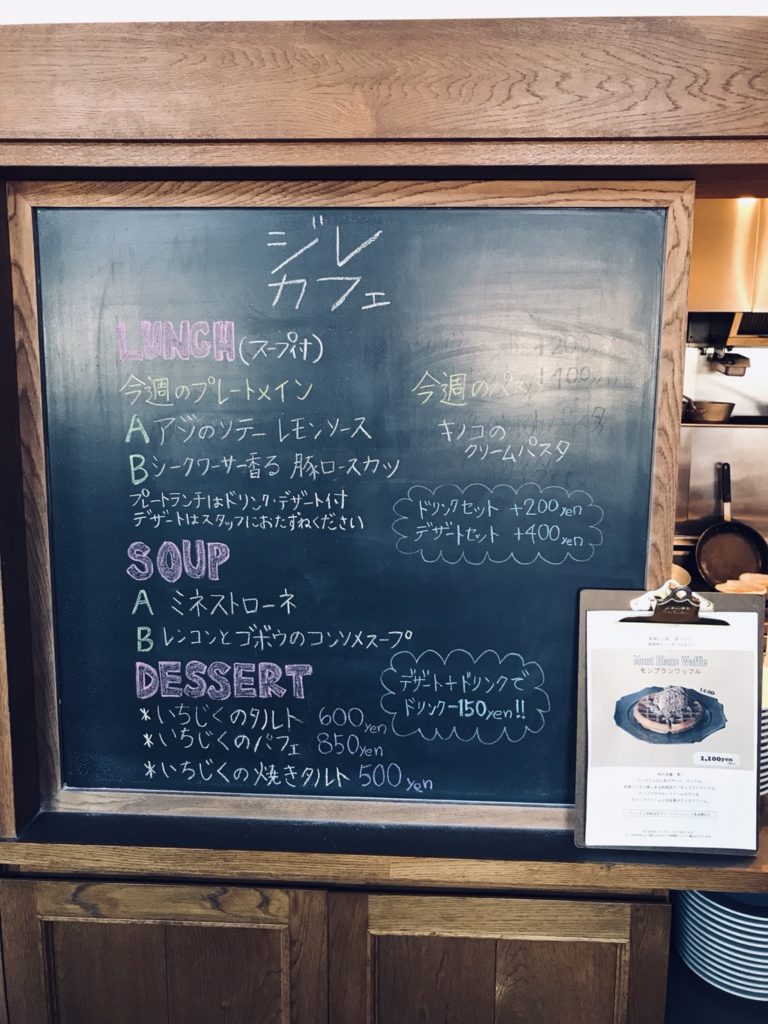 ジレ
カフェ
LUNCH(スープ付)
今週のプレートメイン
A アジのソテー レモンソース
B シークワーサー香る 豚ロースカツ
プレートランチはドリンク・デザート付
デザートはスタッフにおたずねください
今週のパスタ
キノコの
クリームパスタ
ドリンクセット +200yen
デザートセット +400yen
SOUP
A ミネストローネ
B レンコンとゴボウのコンソメスープ
DESSERT
*いちじくのタルト 600yen
*いちじくのパフェ 850yen
*いちじくの焼きタルト 500yen
デザート+ドリンクで
ドリンクー150yen!!
Mont Blanc Waffle
モンブランワッフル
1,100yen